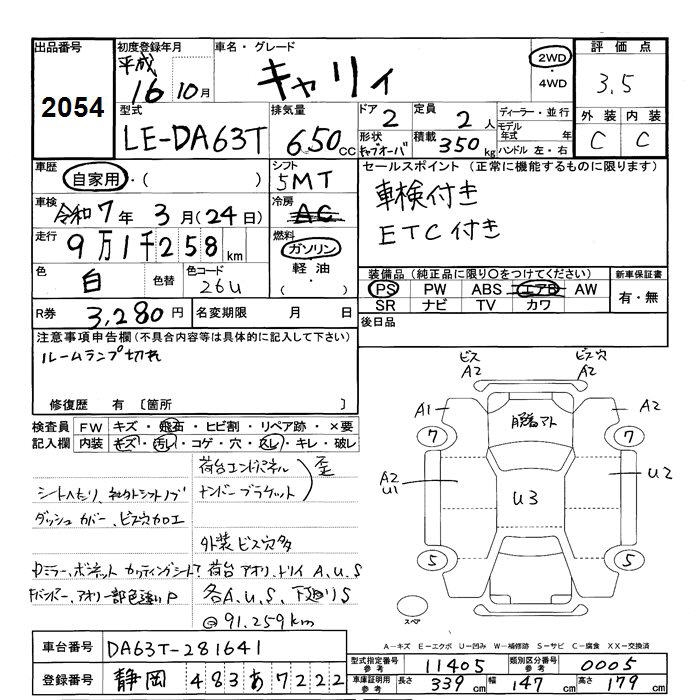 出品番号 初度登録年月 車名・グレード 評価点
2054
平成 16 10月 キャリィ 2WD ・ 4WD 3.5
外装 内装
C C
型式 排気量 ドア 定員 ディーラー・並行
LE-DA63T 650cc 2 2人 モデル年式 年
形状 積載 ハンドル 左・右
キャブオーバ 350kg
車歴 シフト セールスポイント (正常に機能するものに限ります)
自家用・( ) 5MT 車検付き
車検 冷房 ETC付き
令和7年3月(24日) AC
走行 燃料
9万1千258km ガソリン
軽油
・( )
色 色替 色コード
白 26U
装備品 (純正品に限り○をつけてください) 新車保証書
PS PW ABS エアB AW 有・無
SR ナビ TV カワ
R券 3,280円 名変期限 月 日 後日品
注意事項申告欄(不具合内容等は具体的に記入して下さい)
ルームランプ切れ
修復歴 有 〔箇所 〕
検査員 FW キズ・飛石・ヒビ割・リペア跡・×要
記入欄 内装 キズ・汚れ・コゲ・穴・スレ・キレ・破レ
荷台エンドパネル 歪
ナンバーブラケット
シートへたり、社外シフトノブ
ダッシュカバー、ビス穴加工
外装ビス穴多
荷台アオリ、トリイ A、U、S
各A、U、S、下廻りS
@91.259km
ビス A2 ビス穴 A2
A1 A2
7 7
A2 U1 U3 U2
5 5
スペア
A-キズ E-エクボ U-凹み W-補修跡 S-サビ C-腐食 XX-交換済
車台番号 DA63T-281641
登録番号 静岡 483 あ 7222
型式指定番号 参考 11405 類別区分番号 参考 0005
車庫証明用 参考 長さ 339cm 幅 147cm 高さ 179cm